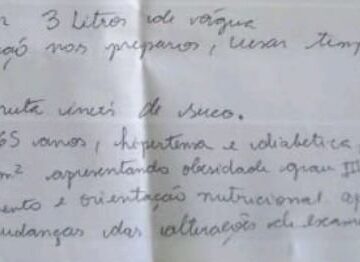 3 Litros de água
nos preparos, usar
fruta invés de suco.
65 anos, hipertensa e diabética,
m² apresentando obesidade grau III
e orientação nutricional
mudanças das alterações de exam